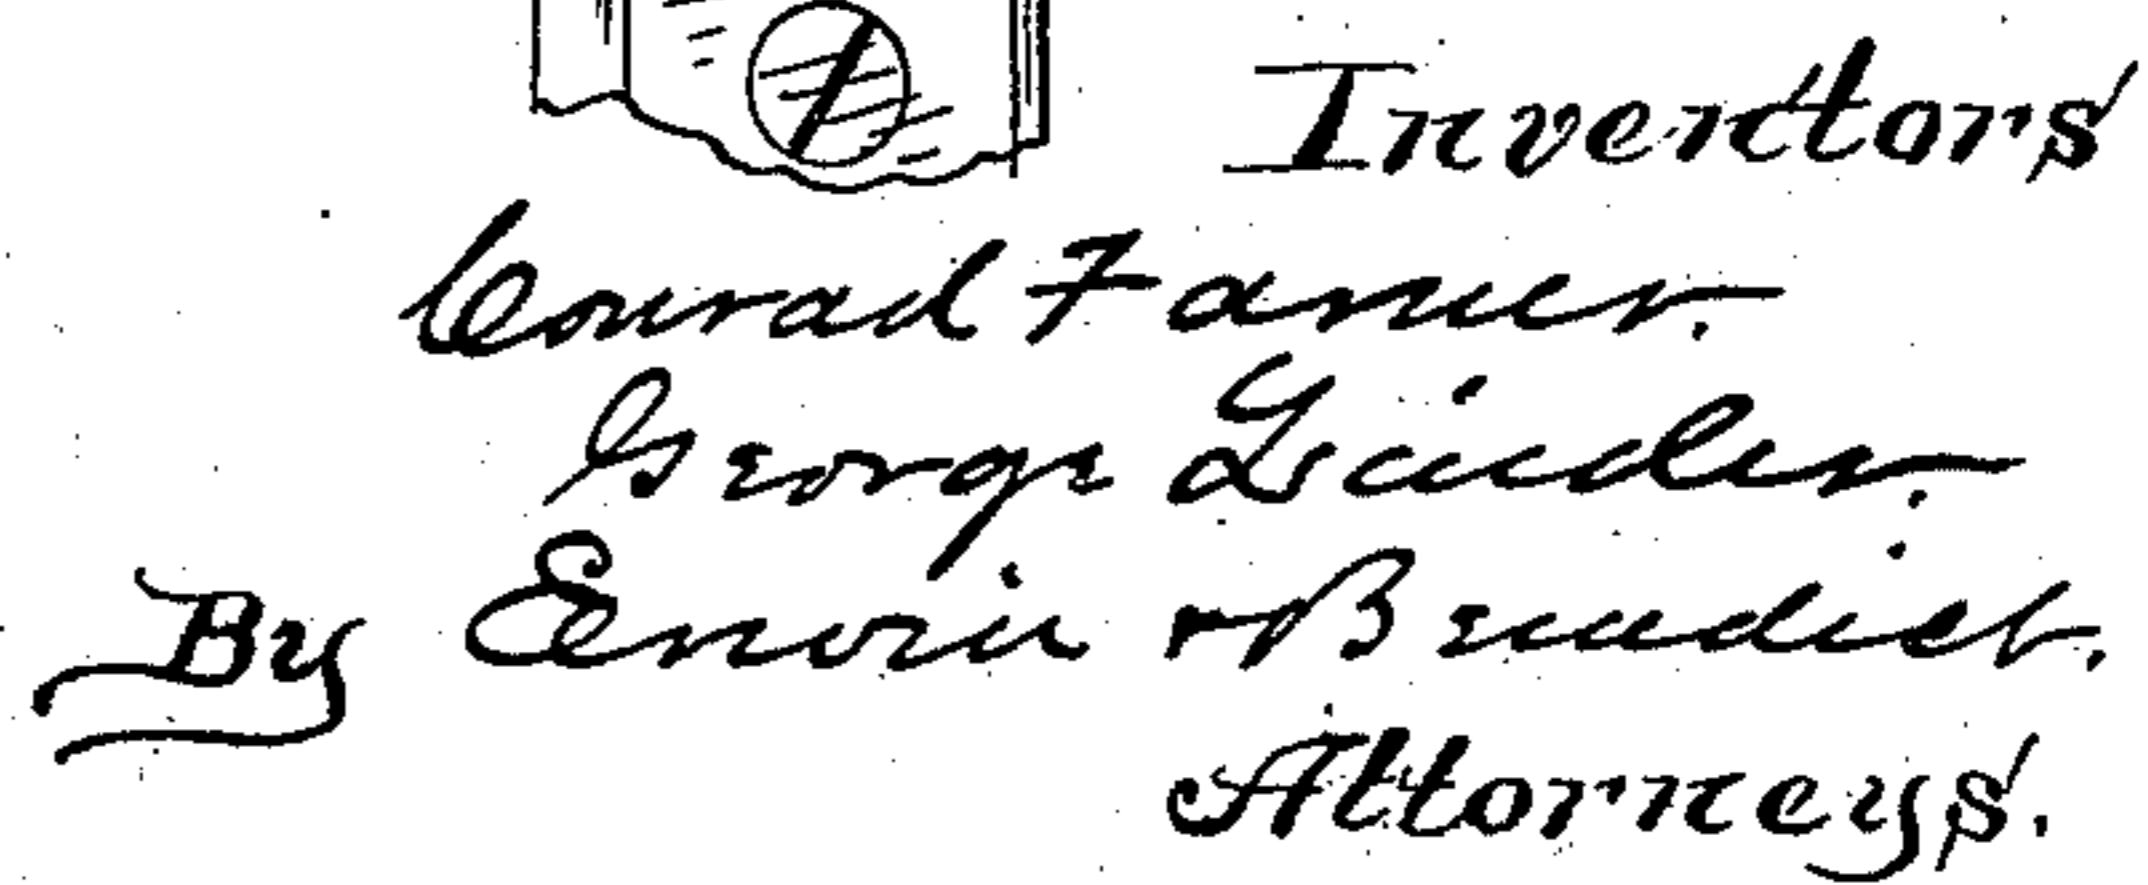 Inventors
Conrad Faner.
George Linder.
By Erwin & Benedict.
Attorneys.